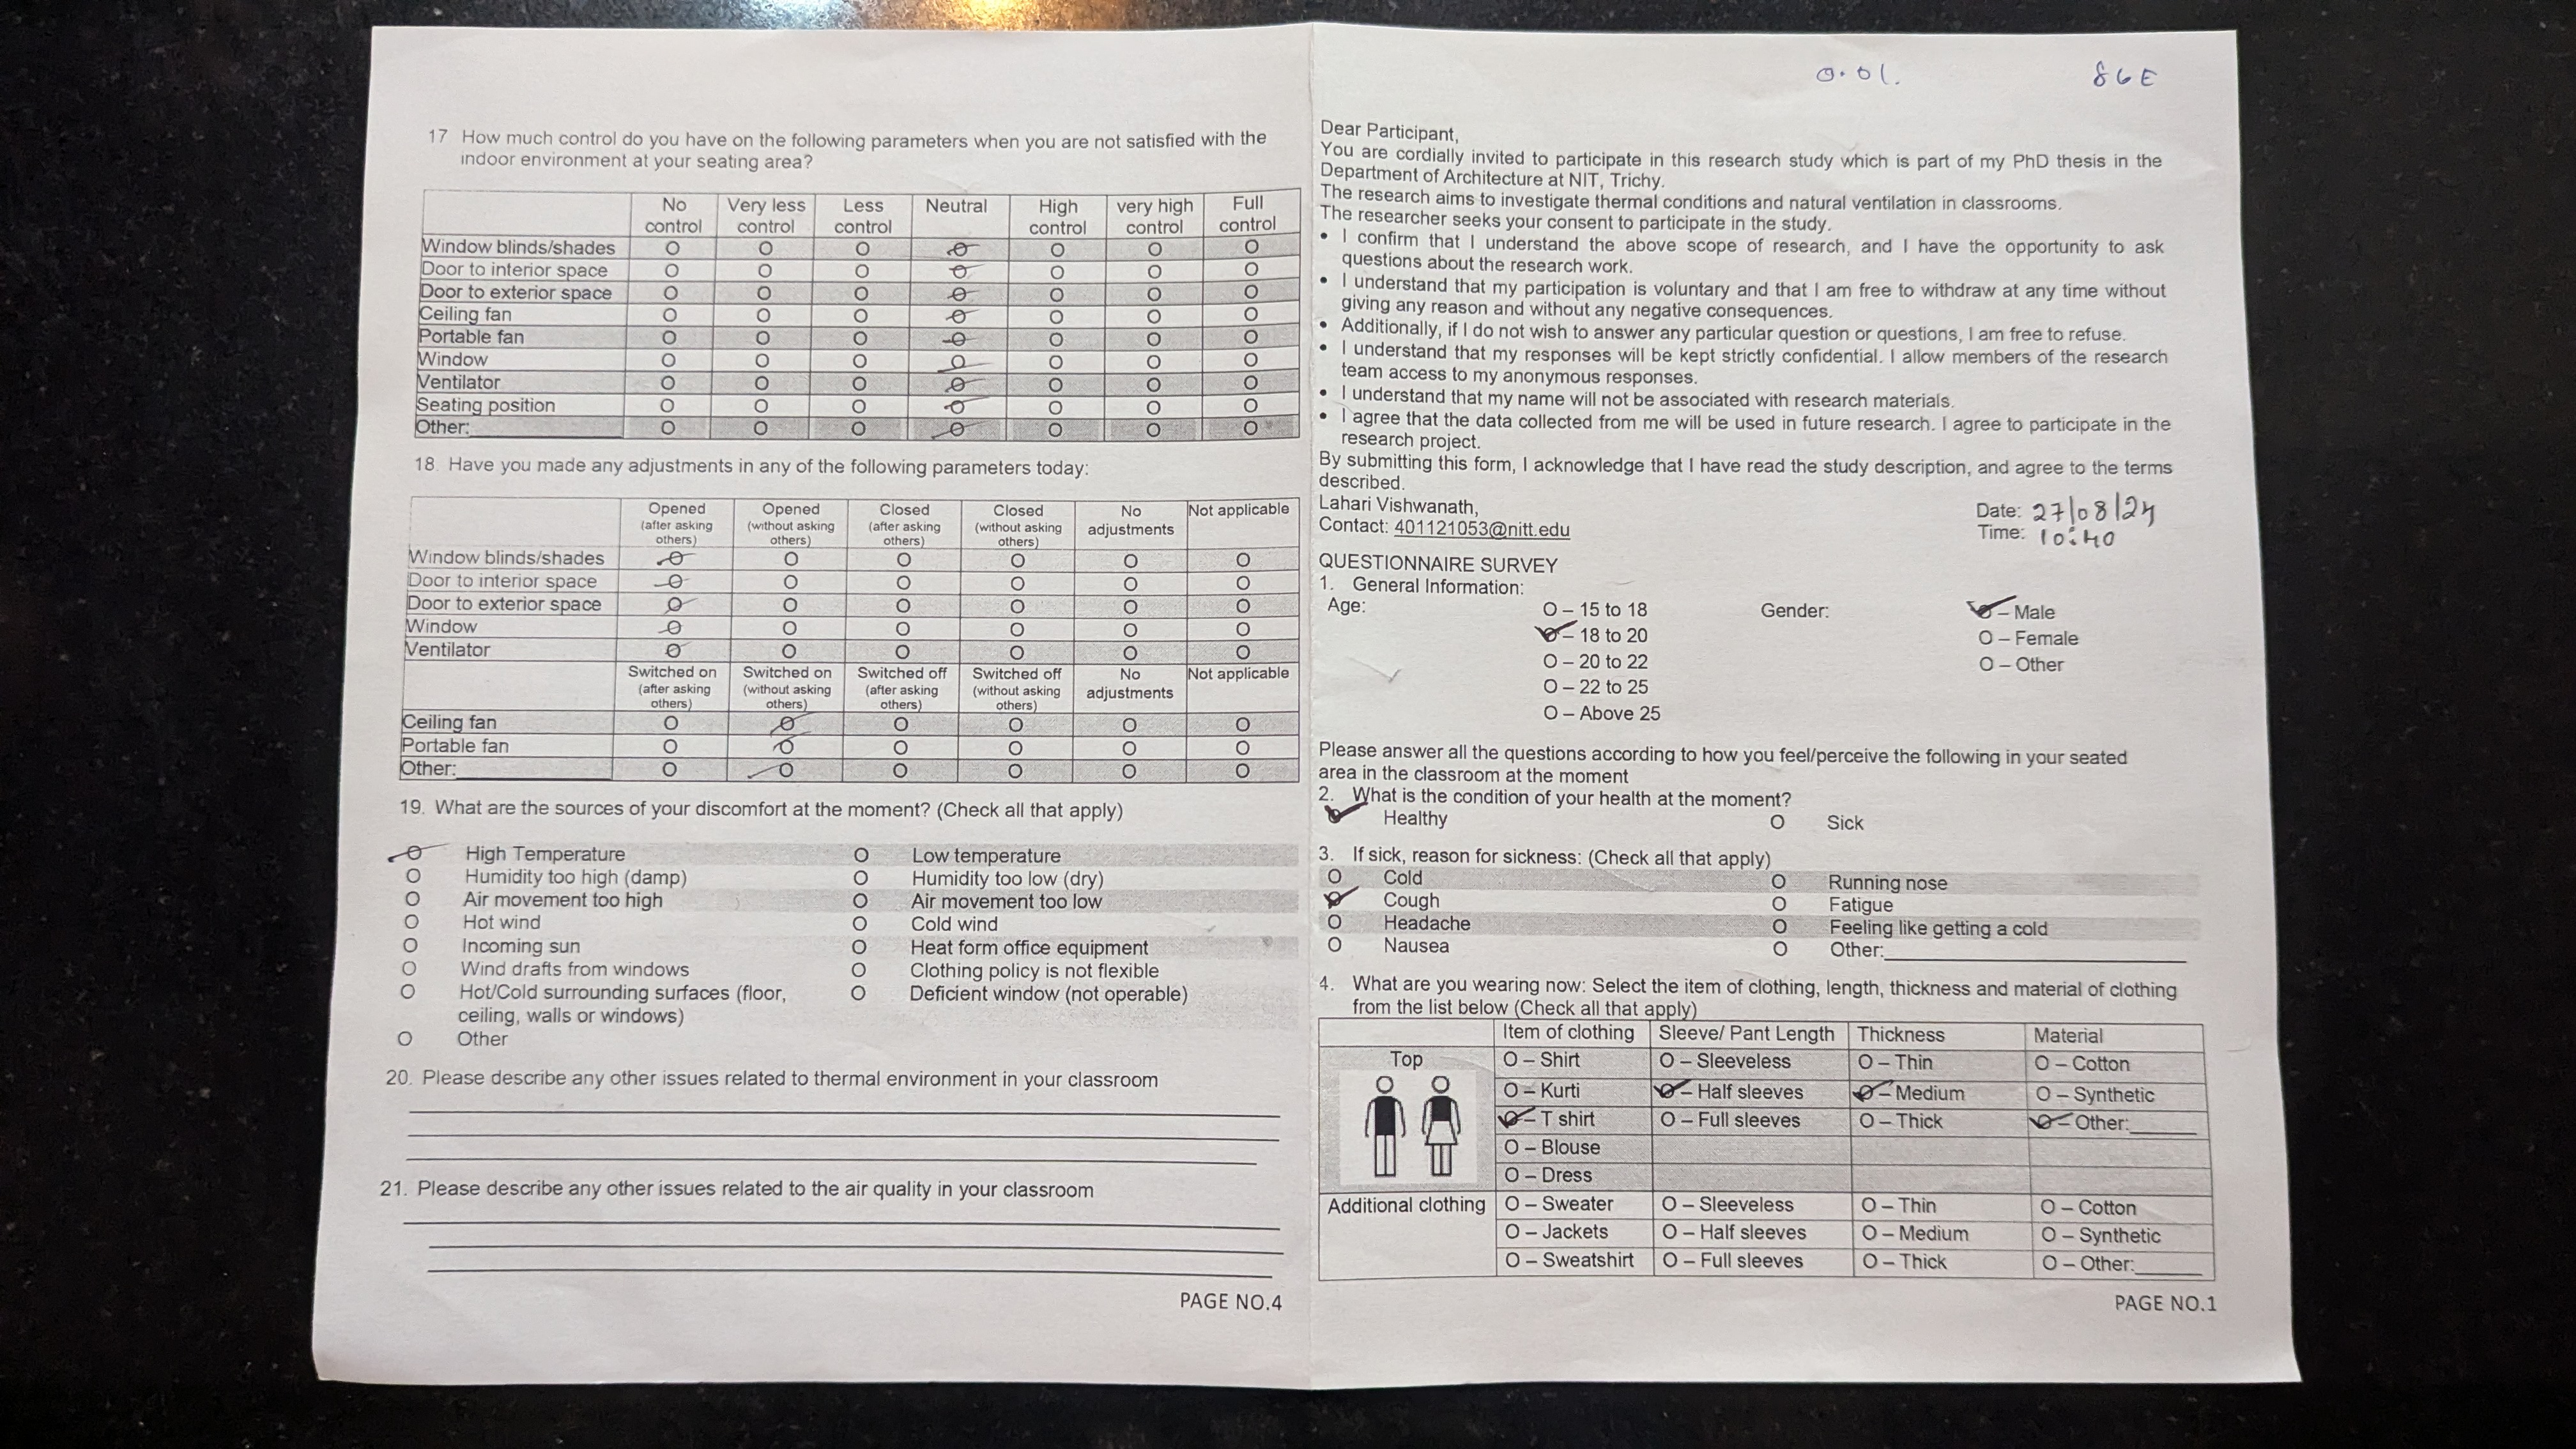 17 How much control do you have on the following parameters when you are not satisfied with the
indoor environment at your seating area?
No control Very less control Less control Neutral High control very high control Full control
Window blinds/shades O O O O O O O
Door to interior space O O O O O O O
Door to exterior space O O O O O O O
Ceiling fan O O O O O O O
Portable fan O O O O O O O
Window O O O O O O O
Ventilator O O O O O O O
Seating position O O O O O O O
Other: O O O O O O O
18. Have you made any adjustments in any of the following parameters today:
Opened (after asking others) Opened (without asking others) Closed (after asking others) Closed (without asking others) No adjustments Not applicable
Window blinds/shades O O O O O O
Door to interior space O O O O O O
Door to exterior space O O O O O O
Window O O O O O O
Ventilator O O O O O O
Switched on (after asking others) Switched on (without asking others) Switched off (after asking others) Switched off (without asking others) No adjustments Not applicable
Ceiling fan O O O O O O
Portable fan O O O O O O
Other: O O O O O O
19. What are the sources of your discomfort at the moment? (Check all that apply)
O High Temperature O Low temperature
O Humidity too high (damp) O Humidity too low (dry)
O Air movement too high O Air movement too low
O Hot wind O Cold wind
O Incoming sun O Heat form office equipment
O Wind drafts from windows O Clothing policy is not flexible
O Hot/Cold surrounding surfaces (floor, O Deficient window (not operable)
ceiling, walls or windows)
O Other
20. Please describe any other issues related to thermal environment in your classroom
21. Please describe any other issues related to the air quality in your classroom
PAGE NO.4
0.01. 86E
Dear Participant,
You are cordially invited to participate in this research study which is part of my PhD thesis in the
Department of Architecture at NIT, Trichy.
The research aims to investigate thermal conditions and natural ventilation in classrooms.
The researcher seeks your consent to participate in the study.
• I confirm that I understand the above scope of research, and I have the opportunity to ask
questions about the research work.
• I understand that my participation is voluntary and that I am free to withdraw at any time without
giving any reason and without any negative consequences.
• Additionally, if I do not wish to answer any particular question or questions, I am free to refuse.
• I understand that my responses will be kept strictly confidential. I allow members of the research
team access to my anonymous responses.
• I understand that my name will not be associated with research materials.
• I agree that the data collected from me will be used in future research. I agree to participate in the
research project.
By submitting this form, I acknowledge that I have read the study description, and agree to the terms
described.
Lahari Vishwanath,
Contact: 401121053@nitt.edu
Date: 27/08/24
Time: 10:40
QUESTIONNAIRE SURVEY
1. General Information:
Age: O – 15 to 18 Gender: O – Male
O – 18 to 20 O – Female
O – 20 to 22 O – Other
O – 22 to 25
O – Above 25
Please answer all the questions according to how you feel/perceive the following in your seated
area in the classroom at the moment
2. What is the condition of your health at the moment?
O Healthy O Sick
3. If sick, reason for sickness: (Check all that apply)
O Cold O Running nose
O Cough O Fatigue
O Headache O Feeling like getting a cold
O Nausea O Other:
4. What are you wearing now: Select the item of clothing, length, thickness and material of clothing
from the list below (Check all that apply)
Item of clothing Sleeve/ Pant Length Thickness Material
Top O – Shirt O – Sleeveless O – Thin O – Cotton
O – Kurti O – Half sleeves O – Medium O – Synthetic
O – T shirt O – Full sleeves O – Thick O – Other:
O – Blouse
O – Dress
Additional clothing O – Sweater O – Sleeveless O – Thin O – Cotton
O – Jackets O – Half sleeves O – Medium O – Synthetic
O – Sweatshirt O – Full sleeves O – Thick O – Other:
PAGE NO.1